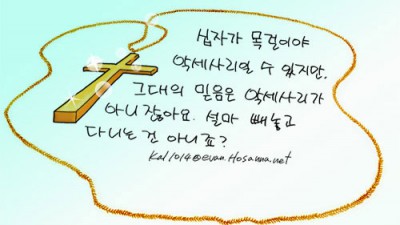 십자가 목걸이야
악세사리일 수 있지만,
그대의 믿음은 악세사리가
아니잖아요. 설마 빼놓고
다니는 건 아니죠?
Kal1014@evan.Hosanna.net